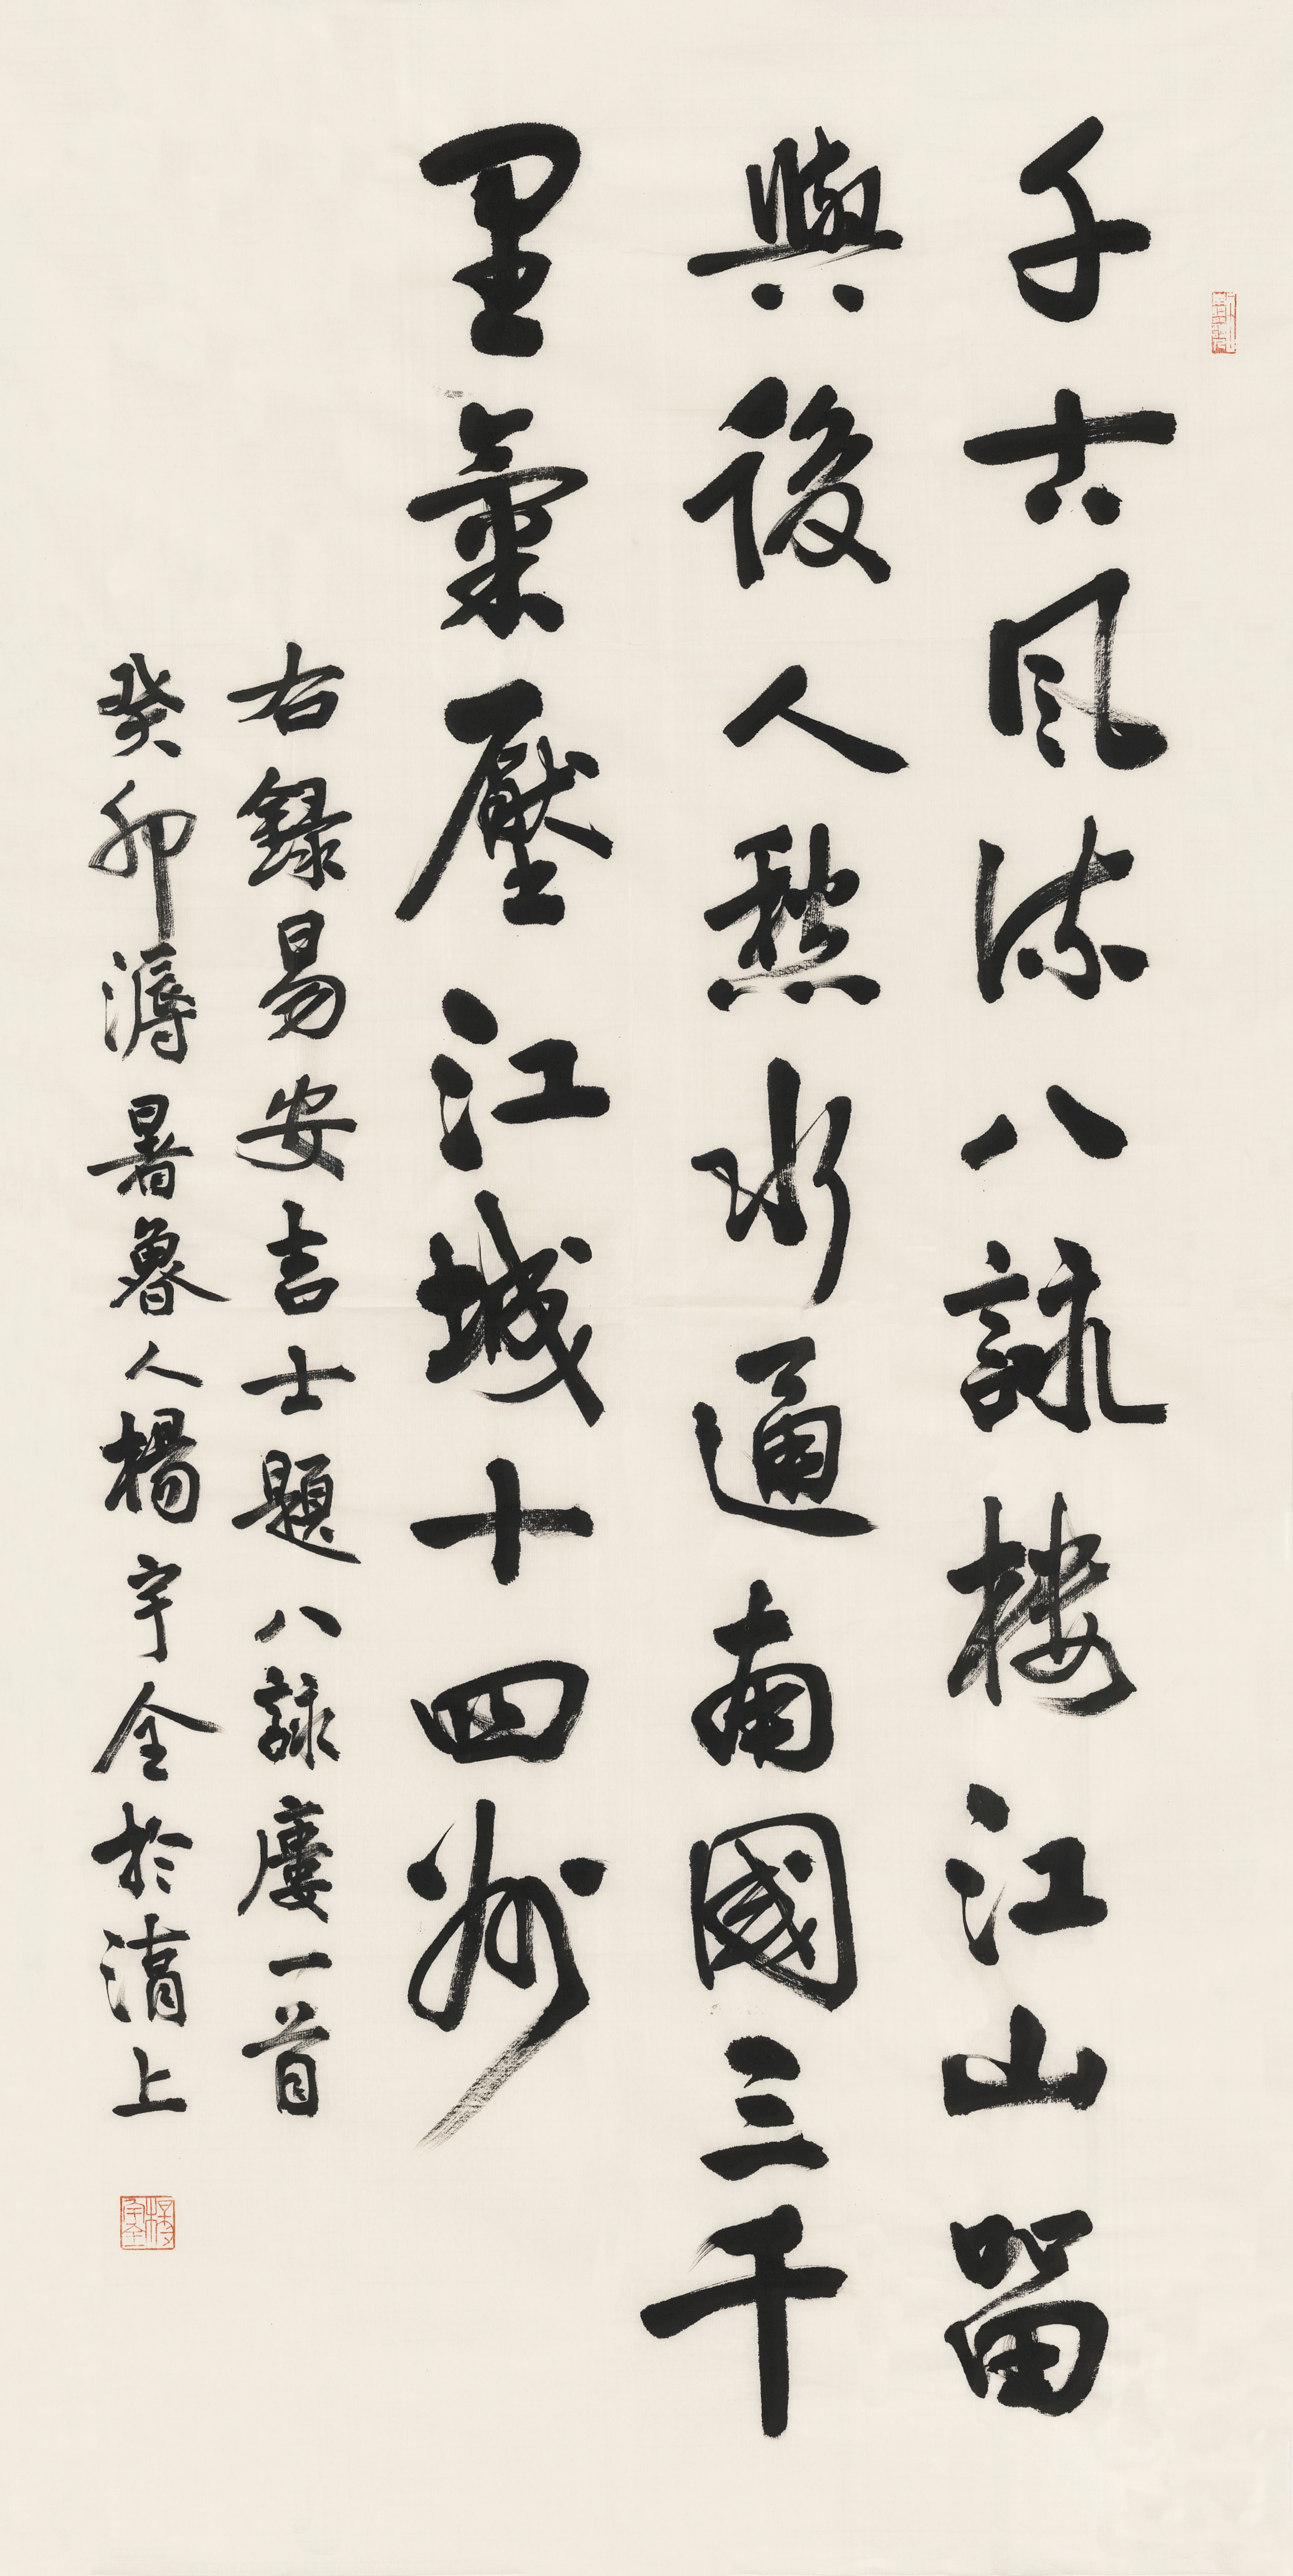 千古風流八詠楼江山留
與後人愁水通南國三千
里氣壓江城十四州
右錄易安吉士題八詠廔一首
癸卯溽暑魯人楊宇全於清上
楊宇全